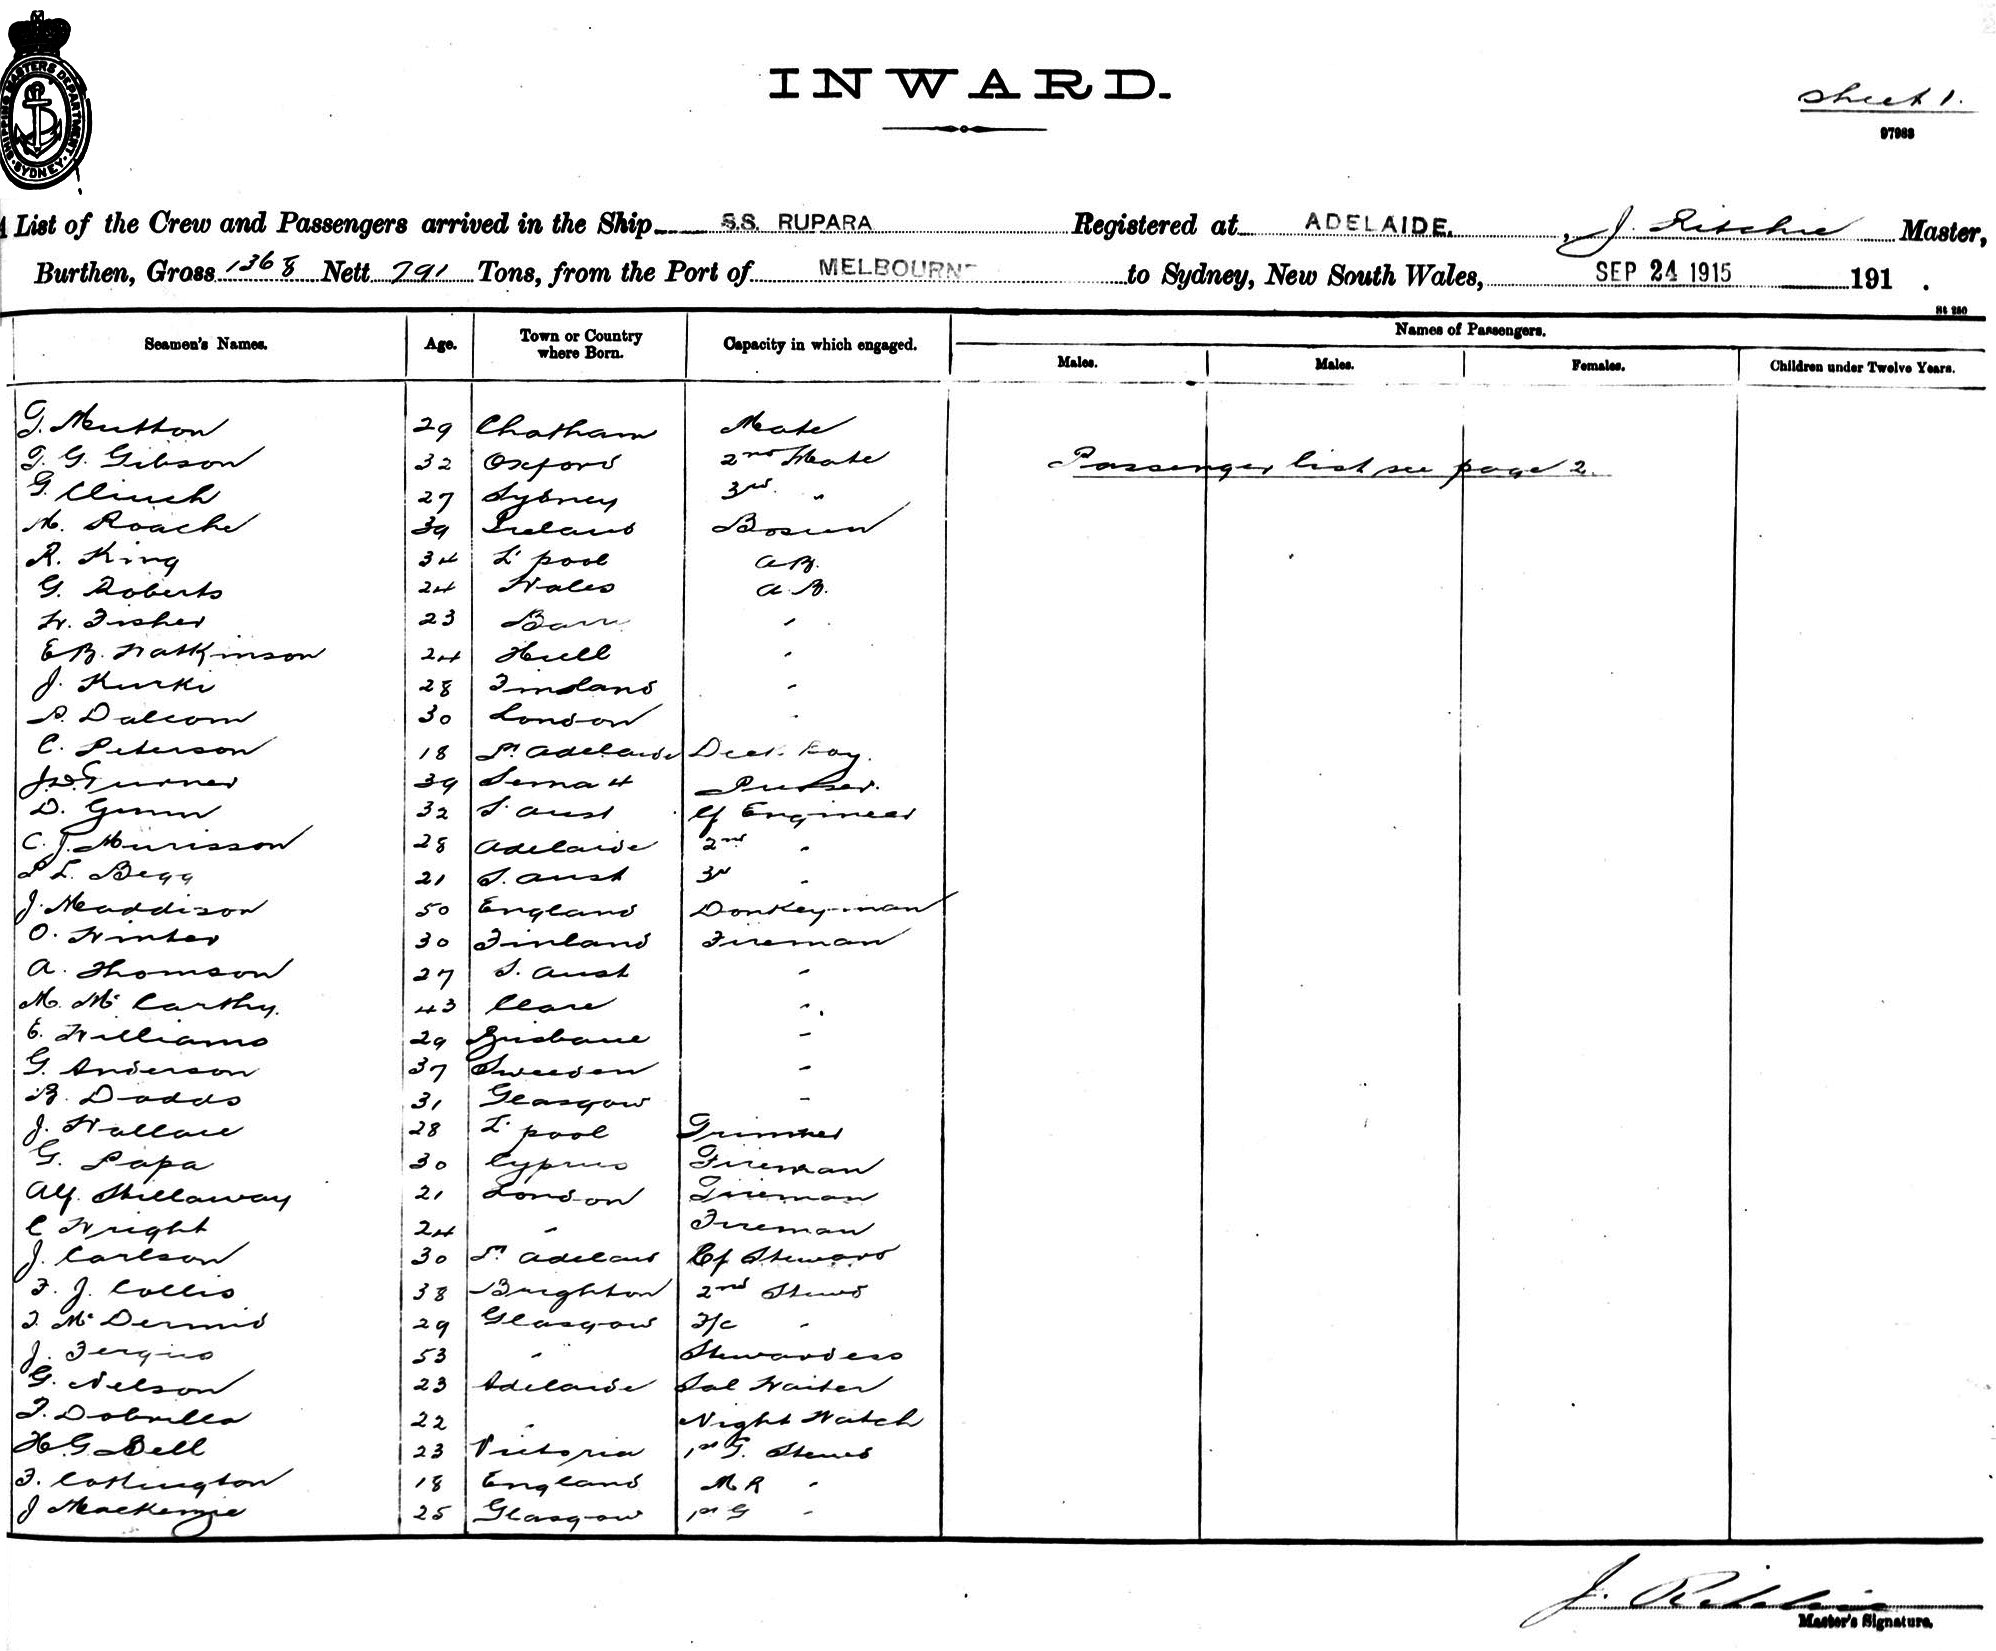 SHIPPING MASTERS DEPARTMENT · SYDNEY ·
INWARD.
Sheet 1.
97983
A List of the Crew and Passengers arrived in the Ship S.S. RUPARA Registered at ADELAIDE. , J. Ritchie Master,
Burthen, Gross 1368 Nett 791 Tons, from the Port of MELBOURNE to Sydney, New South Wales, SEP 24 1915 191 .
St 250
Seamen's Names. Age. Town or Country where Born. Capacity in which engaged. Names of Passengers.
Males. Males. Females. Children under Twelve Years.
G. Mutton 29 Chatham Mate
T. G. Gibson 32 Oxford 2nd Mate Passenger list see page 2.
G. Clinch 27 Sydney 3rd "
M. Roache 39 Ireland Bosun
R. King 34 L'pool A.B.
G. Roberts 24 Wales A.B.
W. Fisher 23 "
E B. Watkinson 24 Hull "
J. Kurki 28 Finland "
P. Dalcom 30 London "
C. Peterson 18 Pt Adelaide Deck Boy.
J. D. Turner 39 Purser.
D. Gunn 32 S. Aust Cf Engineer
C. J. Murisson 28 Adelaide 2nd "
P L. Begg 21 S. Aust 3rd "
J. Maddison 50 England Donkeyman
O. Winter 30 Finland Fireman
A. Thomson 27 S. Aust "
M. McCarthy. 43 Clare "
E. Williams 29 Brisbane "
G. Anderson 37 Sweeden "
B. Dodds 31 Glasgow "
J. Wallace 28 L'pool Trimmer
G. Papa 30 Cyprus Fireman
Alf. Stillaway 21 London Fireman
C Wright 24 " Fireman
J. Carlson 30 Pt Adelaid Cf Steward
F. J. Collis 38 Brighton 2nd Stewd
T. McDermid 29 Glasgow F/C "
J. Fergus 53 " Stewardess
G. Nelson 23 Adelaide Sal Waiter
T. Dobrilla 22 " Night Watch
H. G. Bell 23 Victoria 1st G. Stewd
F. Cottington 18 England M R "
J Mackenzie 25 Glasgow 1st G "
J. Ritchie
Master's Signature.